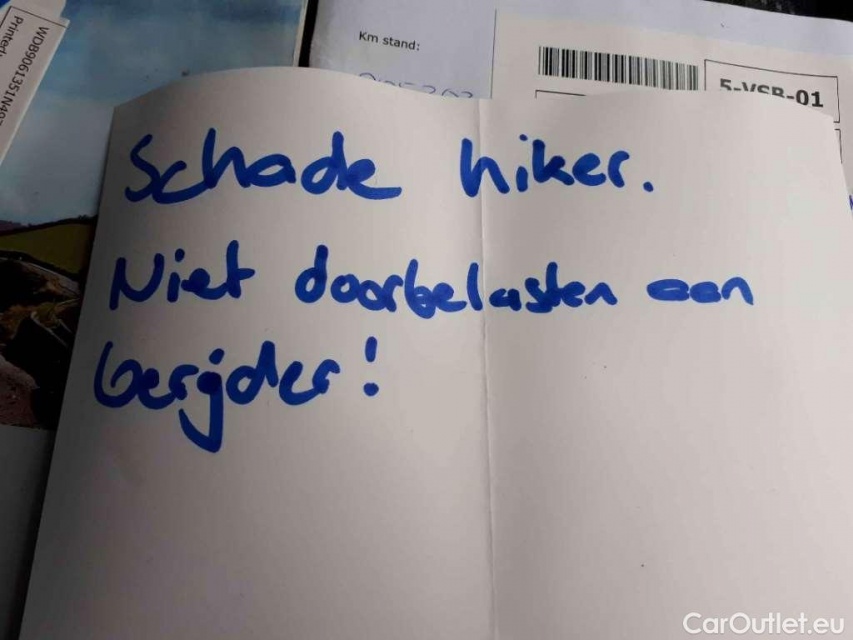 WDB9061351N
Printerl
Km stand:
5-VSB-01
Schade hiker.
Niet doorbelasten aan
berijder!
CarOutlet.eu